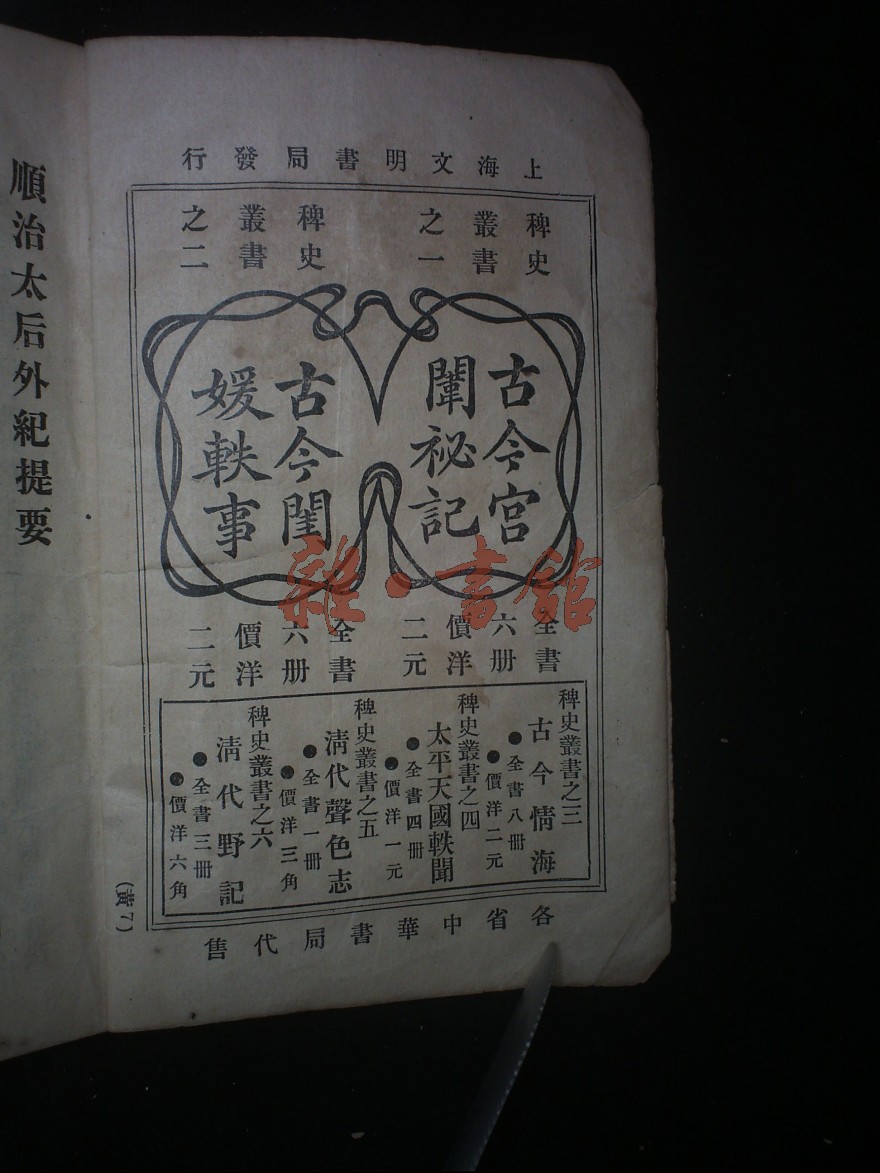 上海文明書局發行
稗史
叢書
之一
古今宮
闈祕記
全書
六册
價洋
二元
稗史
叢書
之二
古今閨
媛軼事
全書
六册
價洋
二元
稗史叢書之三
古今情海
●全書八冊
●價洋二元
稗史叢書之四
太平天國軼聞
●全書四冊
●價洋一元
稗史叢書之五
清代聲色志
●全書一冊
●價洋三角
稗史叢書之六
清代野記
●全書三冊
●價洋六角
各省中華書局代售
(黃7)
順治太后外紀提要
雜·書館